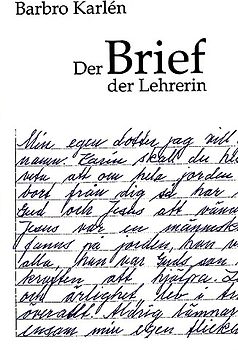 Barbro Karlén
Der Brief
der Lehrerin
Min egen dotter jag vill
namn. Karin skall du he
veta att om hela jorden
bort från dig så har
Gud och Jesus att vänd
Jesus var en människ
fanns på jorden, han v
alla han var Guds son.
kraften att hjälpa.
och ärlighet lev i
överallt! Aldrig lämnar
ensam min egen flicka